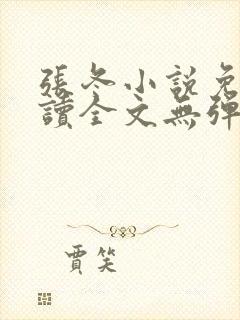 張冬小說免
讀全文無彈
賈笑